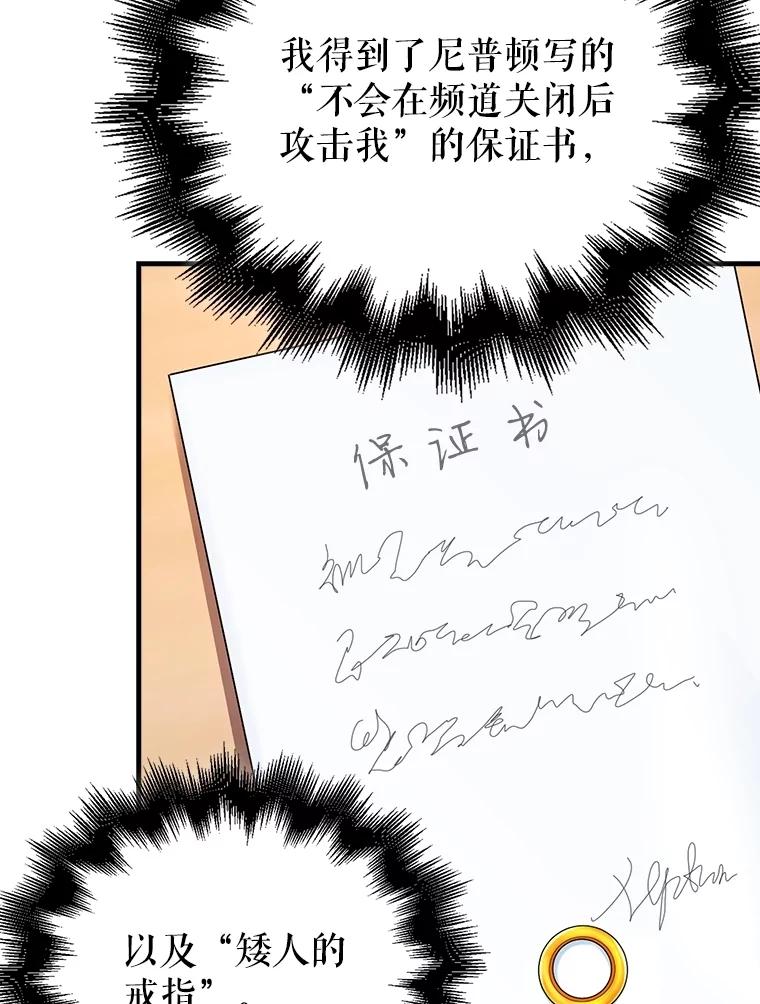 我得到了尼普顿写的
“不会在频道关闭后
攻击我”的保证书，
保证书
以及“矮人的
戒指”。